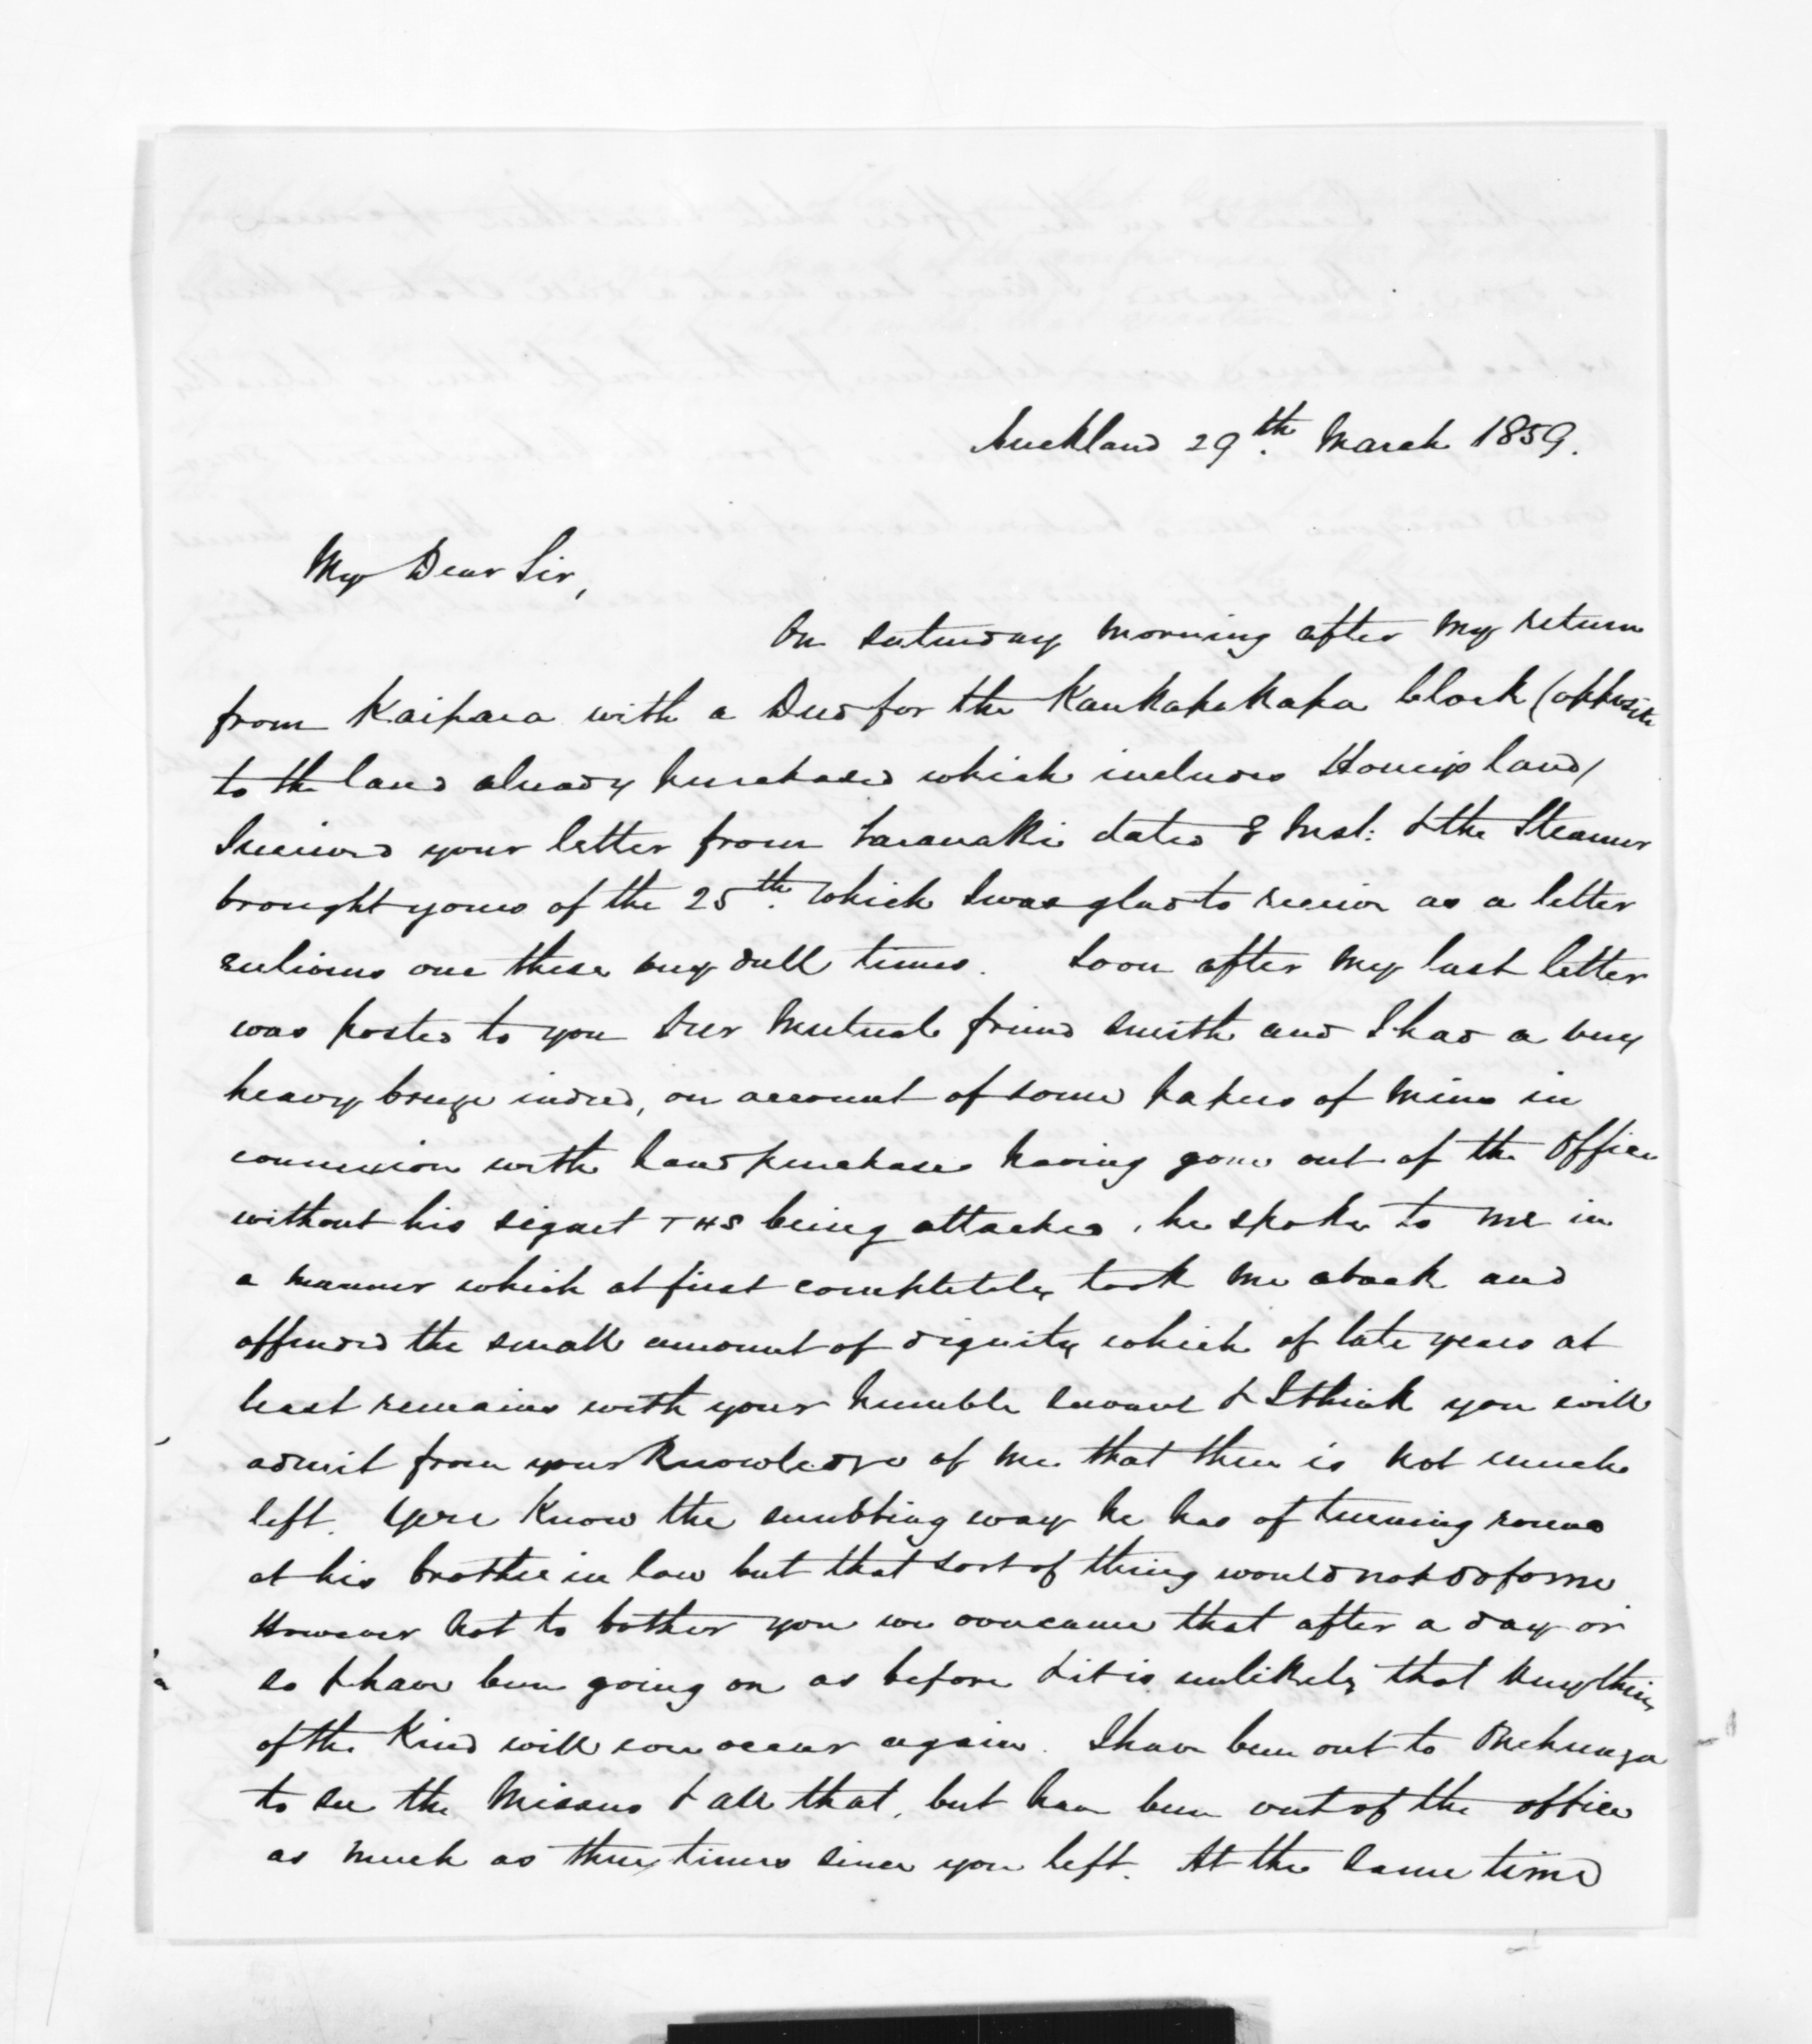 Auckland 29th. March 1859.
My Dear Sir,
On Saturday morning after my return
from Kaipara with a Deed for the Kaukapakapa block (opposite
to the land already purchased which includes Honeip land)
I received your letter from Taranaki dated 8 Inst: & the Steamer
brought yours of the 25th. which I was glad to receive as a letter
enlivens one these very dull times. Soon after my last letter
was posted to you Our Mutual friend Smith and I had a very
heavy breeze indeed, on account of some papers of mine in
connexion with Land purchases having gone out of the Office
without his signet THS being attached, he spoke to me in
a manner which at first completely took me aback and
offended the small amount of dignity which of late years at
least remains with your humble servant & I think you will
admit from your knowledge of me that there is not much
left. You know the snubbing way he has of turning round
at his brother in law but that sort of thing would not do for me
However not to bother you we overcame that after a day or
so & have been going on as before & it is unlikely that anything
of the Kind will ever occur again. I have been out to Onehunga
to see the Missus & all that, but have been out of the office
as much as three times since you left. At the same time